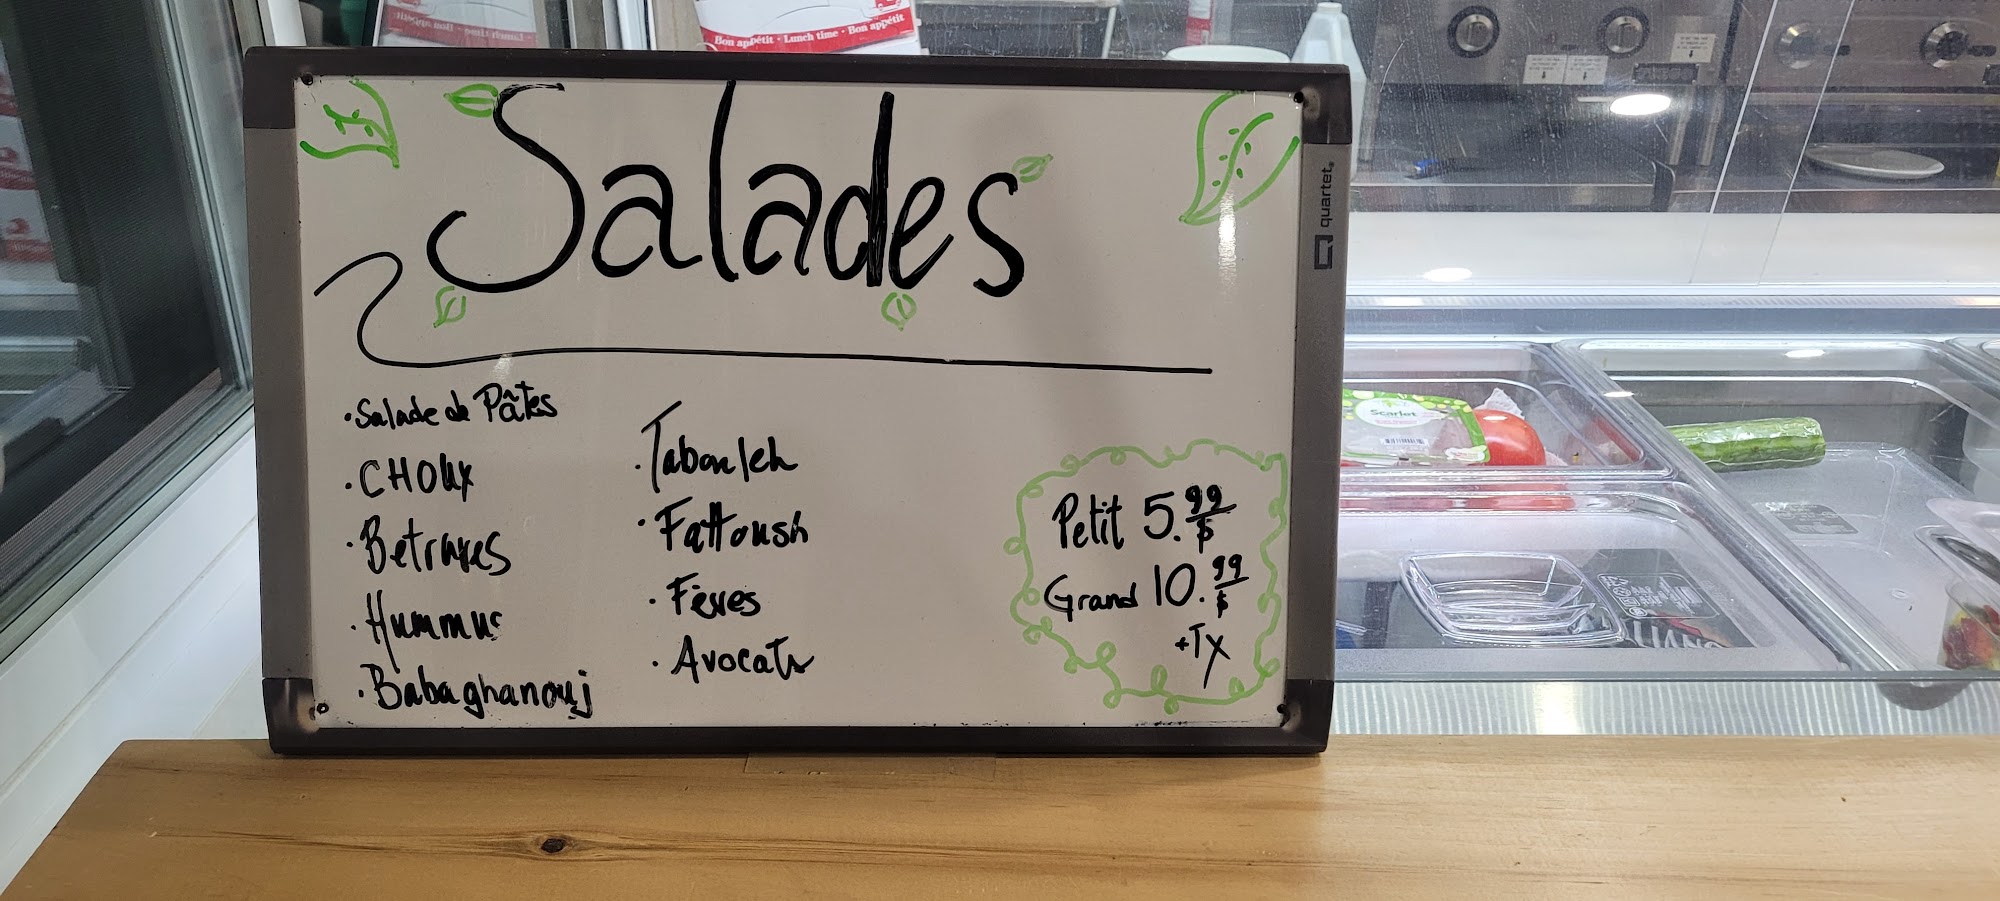 Bon appétit • Lunch time • Bon appétit
Salades
quartet
• Salade de Pâtes
• CHOUX
• Betraves
• Hummus
• Babaghanouj
• Tabouleh
• Fattoush
• Fèves
• Avocats
Petit 5.99$
Grand 10.99$
+Tx
Scarlet